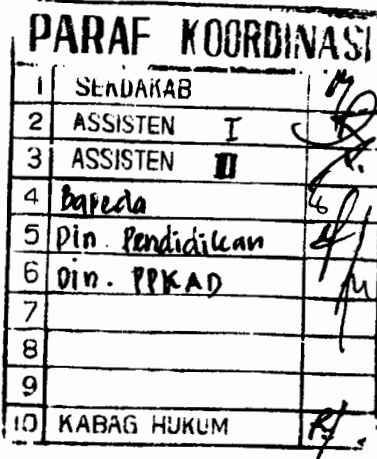 PARAF KOORDINASI
1 SEKDAKAB
2 ASSISTEN I
3 ASSISTEN II
4 Bapeda
5 Din. Pendidikan
6 Din. PPKAD
7
8
9
10 KABAG HUKUM